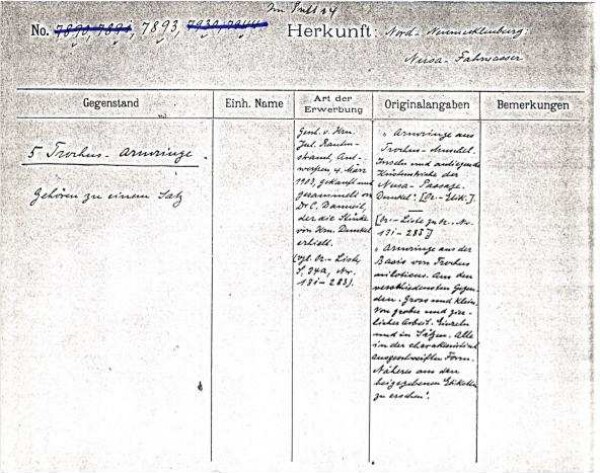 Im Pult 24
No. 7890, 7891, 7893, 7930, 7944 Herkunft: Nord-Neumecklenburg,
Nusa-Fahrwasser
Gegenstand Einh. Name Art der Erwerbung Originalangaben Bemerkungen
5 Trochus-Armringe
Gehören zu einem Satz
Gesch. v. Hrn.
Jul. Rauten-
strauch, Ant-
werpen, 4. März
1903, gekauft und
gesammelt von
Dr. C. Danneil,
der die Stücke
von Hrn. Dunckel
erhielt.
(vgl. Or.-Liste
S. 34a, Nr.
181-283).
"Armringe aus
Trochus-Muschel.
Inseln und anliegende
Küstenstriche der
Nusa-Passage.
Dunckel". [Or.-Etik.].
[Or.-Liste zu Or.-Nr.
131-283]
"Armringe aus der
Basis von Trochus
niloticus. Aus den
verschiedensten Gegen-
den. Gross und klein,
von grober und zier-
licher Arbeit. Einzeln
und in Sätzen. Alle
in der charakteristisch
ausgeschweiften Form.
Näheres aus den
beigegebenen Etiketten
zu ersehen".